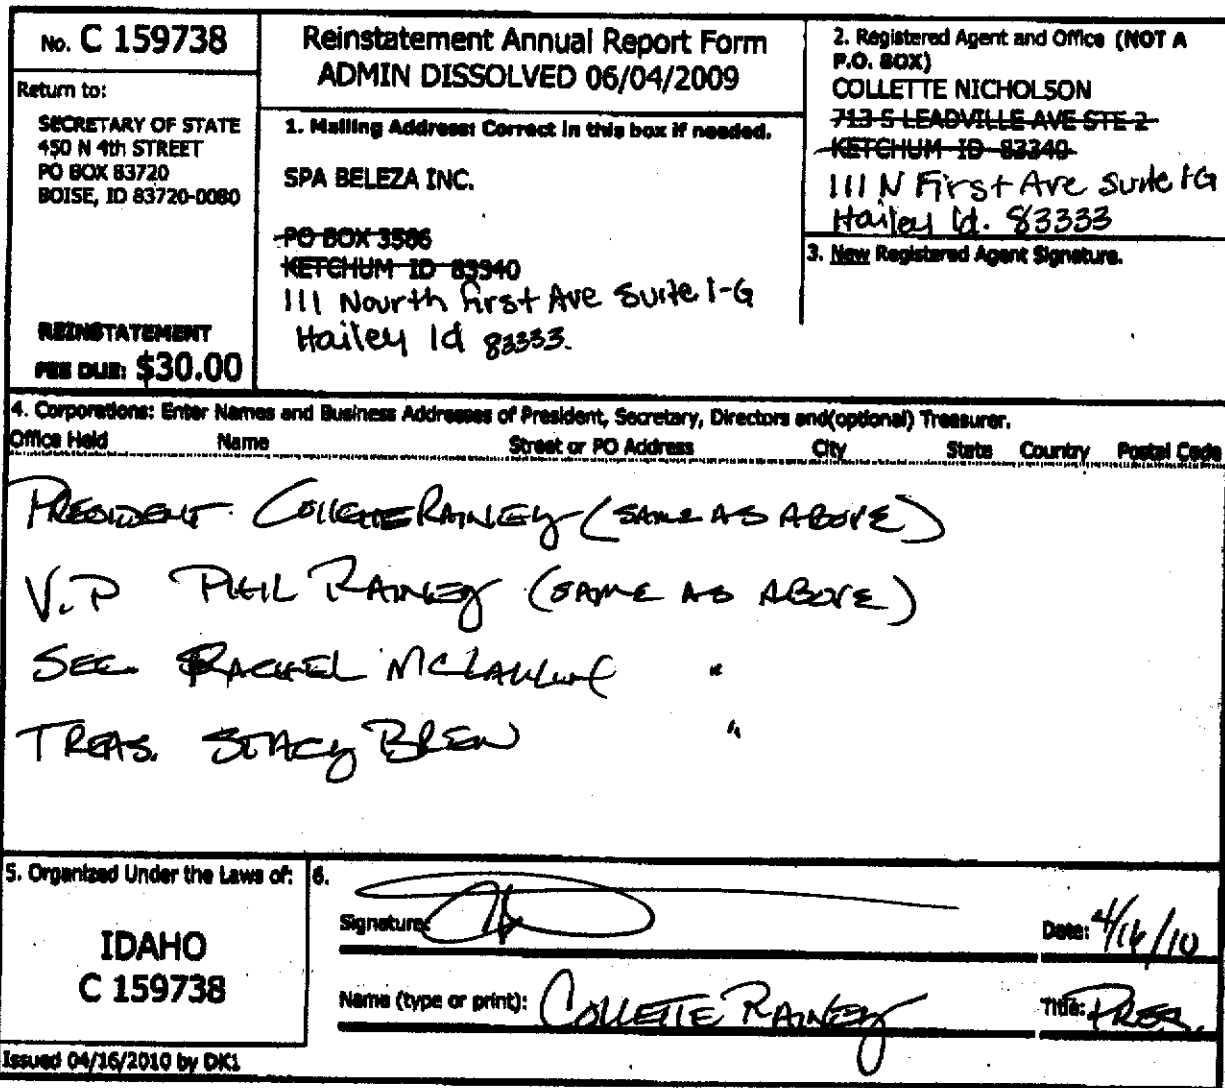 No. C 159738
Return to:
SECRETARY OF STATE
450 N 4th STREET
PO BOX 83720
BOISE, ID 83720-0080
REINSTATEMENT
FEE DUE: $30.00
Reinstatement Annual Report Form
ADMIN DISSOLVED 06/04/2009
1. Mailing Address: Correct in this box if needed.
SPA BELEZA INC.
PO BOX 3586
KETCHUM ID 83340
111 Nourth First Ave Suite 1-G
Hailey Id 83333.
2. Registered Agent and Office (NOT A
P.O. BOX)
COLLETTE NICHOLSON
713 S LEADVILLE AVE STE 2
KETCHUM ID 83340
111 N First Ave Suite 1G
Hailey Id. 83333
3. New Registered Agent Signature.
4. Corporations: Enter Names and Business Addresses of President, Secretary, Directors and(optional) Treasurer.
Office Held Name Street or PO Address City State Country Postal Code
PRESIDENT. COLLETTE RAINEY (SAME AS ABOVE)
V.P PHIL RAINEY (SAME AS ABOVE)
SEC. RACHEL "
TREAS. STACY BREW "
5. Organized Under the Laws of:
IDAHO
C 159738
6.
Signature: Date: 4/16/10
Name (type or print): COLLETTE RAINEY Title: PRES.
Issued 04/16/2010 by DK1